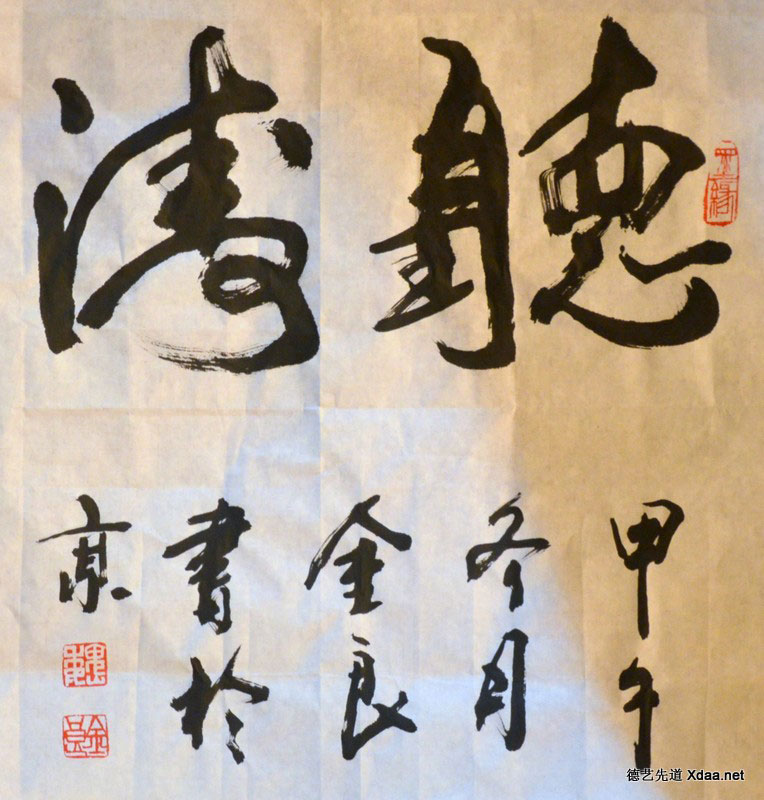 聽濤
甲午
冬月
金良
書於
京
德艺先道 Xdaa.net